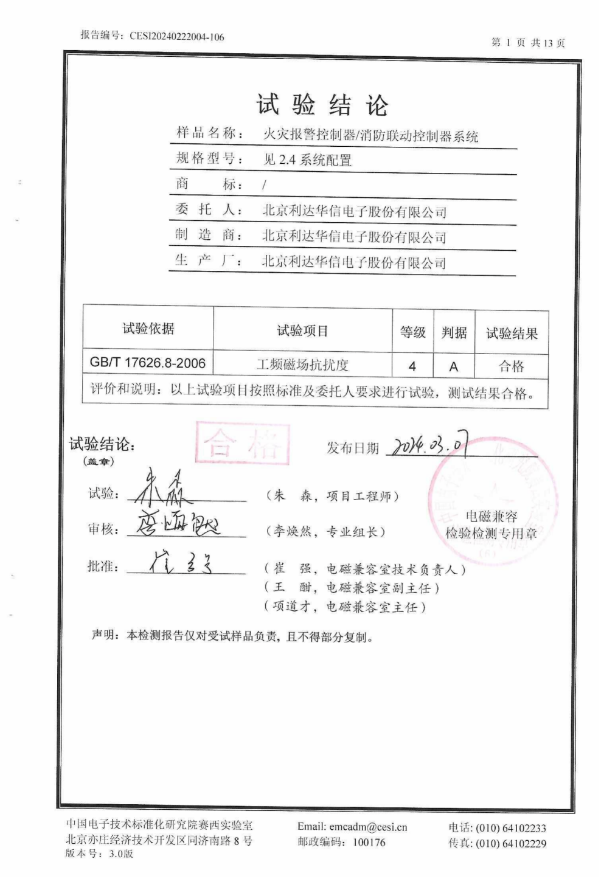 报告编号：CESI20240222004-106
第 1 页 共13页
试验结论
样品名称： 火灾报警控制器/消防联动控制器系统
规格型号： 见 2.4 系统配置
商 标： /
委 托 人： 北京利达华信电子股份有限公司
制 造 商： 北京利达华信电子股份有限公司
生 产 厂： 北京利达华信电子股份有限公司
试验依据 试验项目 等级 判据 试验结果
GB/T 17626.8-2006 工频磁场抗扰度 4 A 合格
评价和说明：以上试验项目按照标准及委托人要求进行试验，测试结果合格。
试验结论： 合格 发布日期 2024.03.07
(盖章)
试验： 朱森 （朱 森，项目工程师）
电磁兼容
审核： 李焕然 （李焕然，专业组长）
检验检测专用章
批准： 崔强 （崔 强，电磁兼容室技术负责人）
（王 酣，电磁兼容室副主任）
（项道才，电磁兼容室主任）
声明：本检测报告仅对受试样品负责，且不得部分复制。
中国电子技术标准化研究院赛西实验室 Email: emcadm@cesi.cn 电话: (010) 64102233
北京亦庄经济技术开发区同济南路 8 号 邮政编码： 100176 传真: (010) 64102229
版本号：3.0版